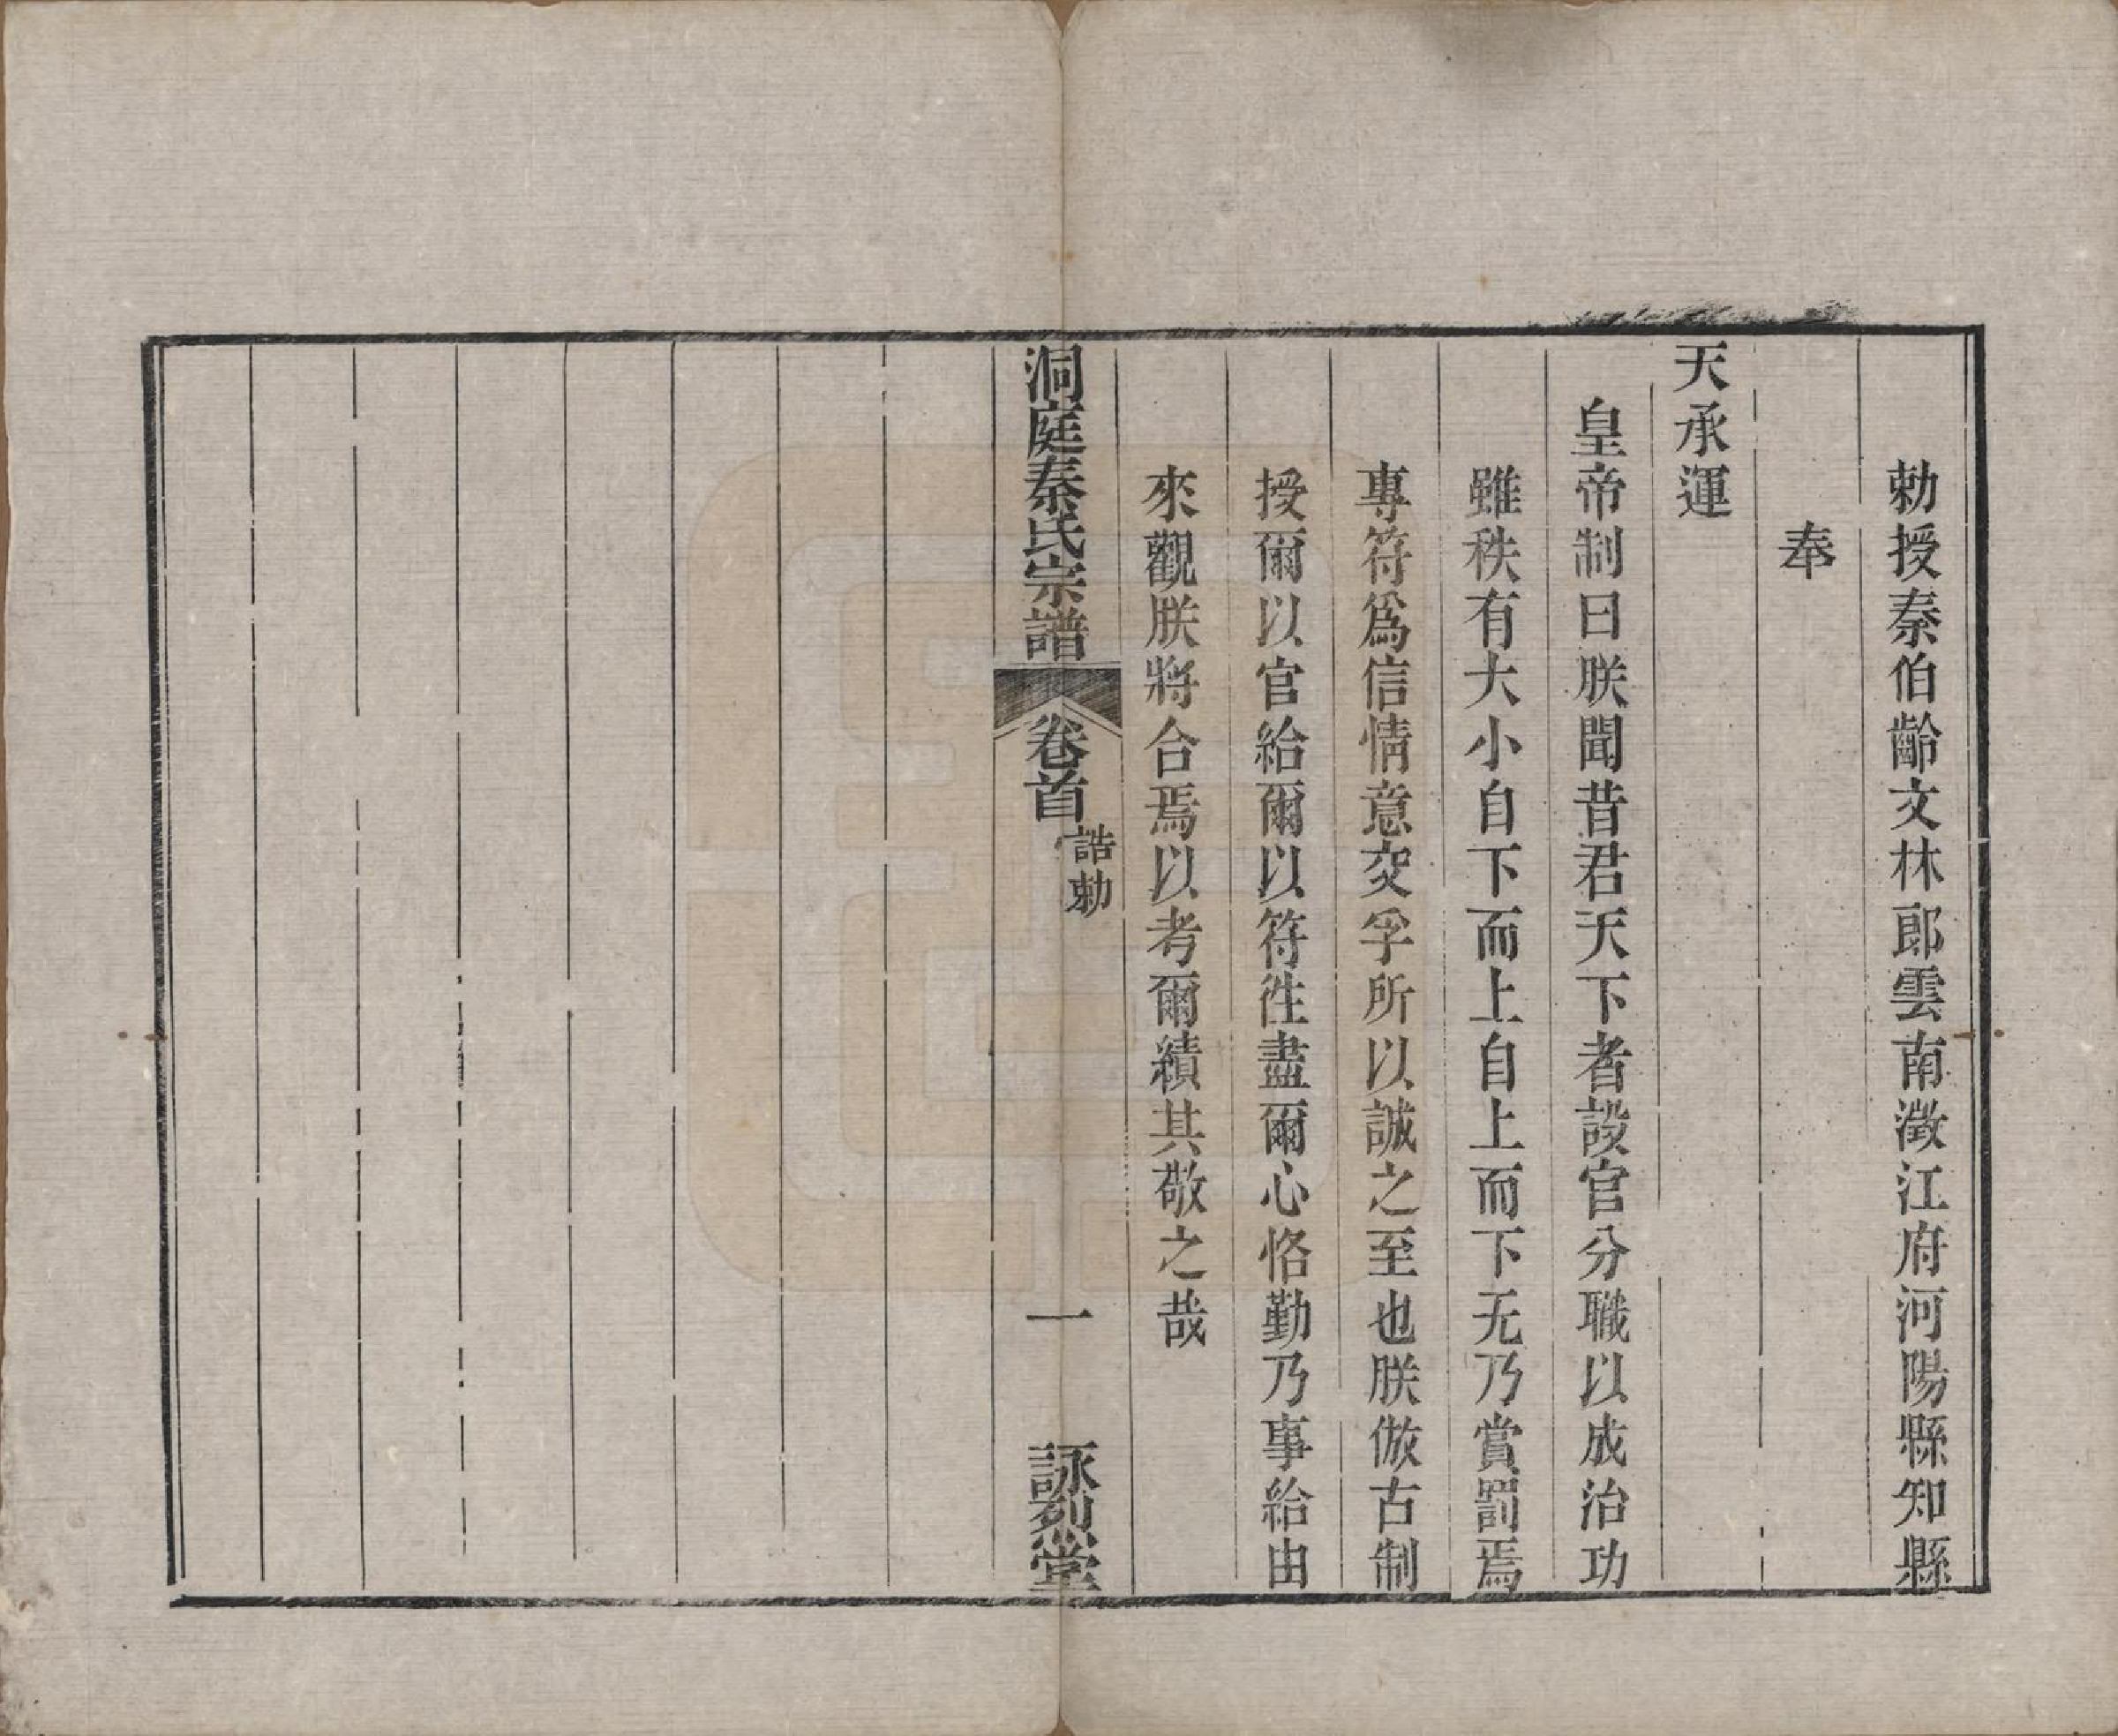 勅授秦伯齡文林郎雲南澂江府河陽縣知縣
奉
天承運
皇帝制曰朕聞昔君天下者設官分職以成治功
雖秩有大小自下而上自上而下无乃賞罰焉
專符爲信情意交孚所以誠之至也朕倣古制
授爾以官給爾以符徃盡爾心恪勤乃事給由
來觀朕將合焉以考爾績其敬之哉
洞庭秦氏宗譜 卷首 誥勅 一 詠烈堂